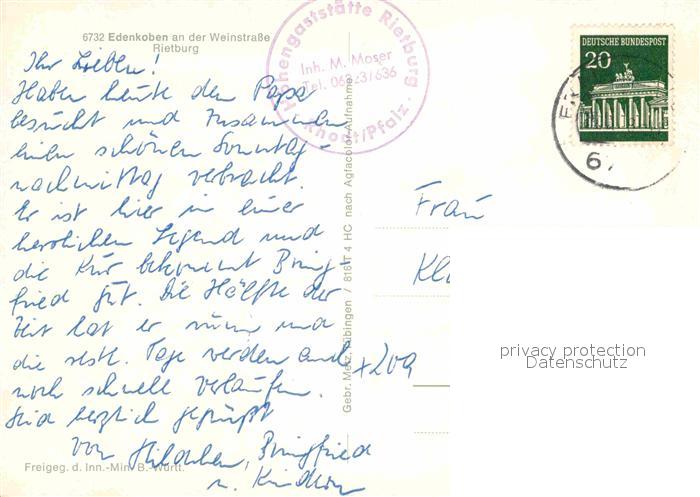 6732 Edenkoben an der Weinstraße
Rietburg
Ihr Lieben!
Haben heute den Papa
besucht und zusammen
einen schönen Sonntag-
nachmittag verbracht.
Er ist hier in einer
herrlichen Gegend und
die Kur bekommt
fried gut. Die Hälfte der
Zeit hat er nun und
die restl. Tage werden auch
noch schnell verlaufen.
Seid herzlich gegrüßt
von
u. Kindern
Freigeg. d. Inn.-Min. B.-Württ.
Gebr. Metz, Tübingen / 816 T 4 HC nach Agfacolor-Aufnahme
Höhengaststätte Rietburg
Inh. M. Moser
Tel. 06323/636
Rhodt/Pfalz.
DEUTSCHE BUNDESPOST
20
67
Frau
Kl
x20a
privacy protection
Datenschutz